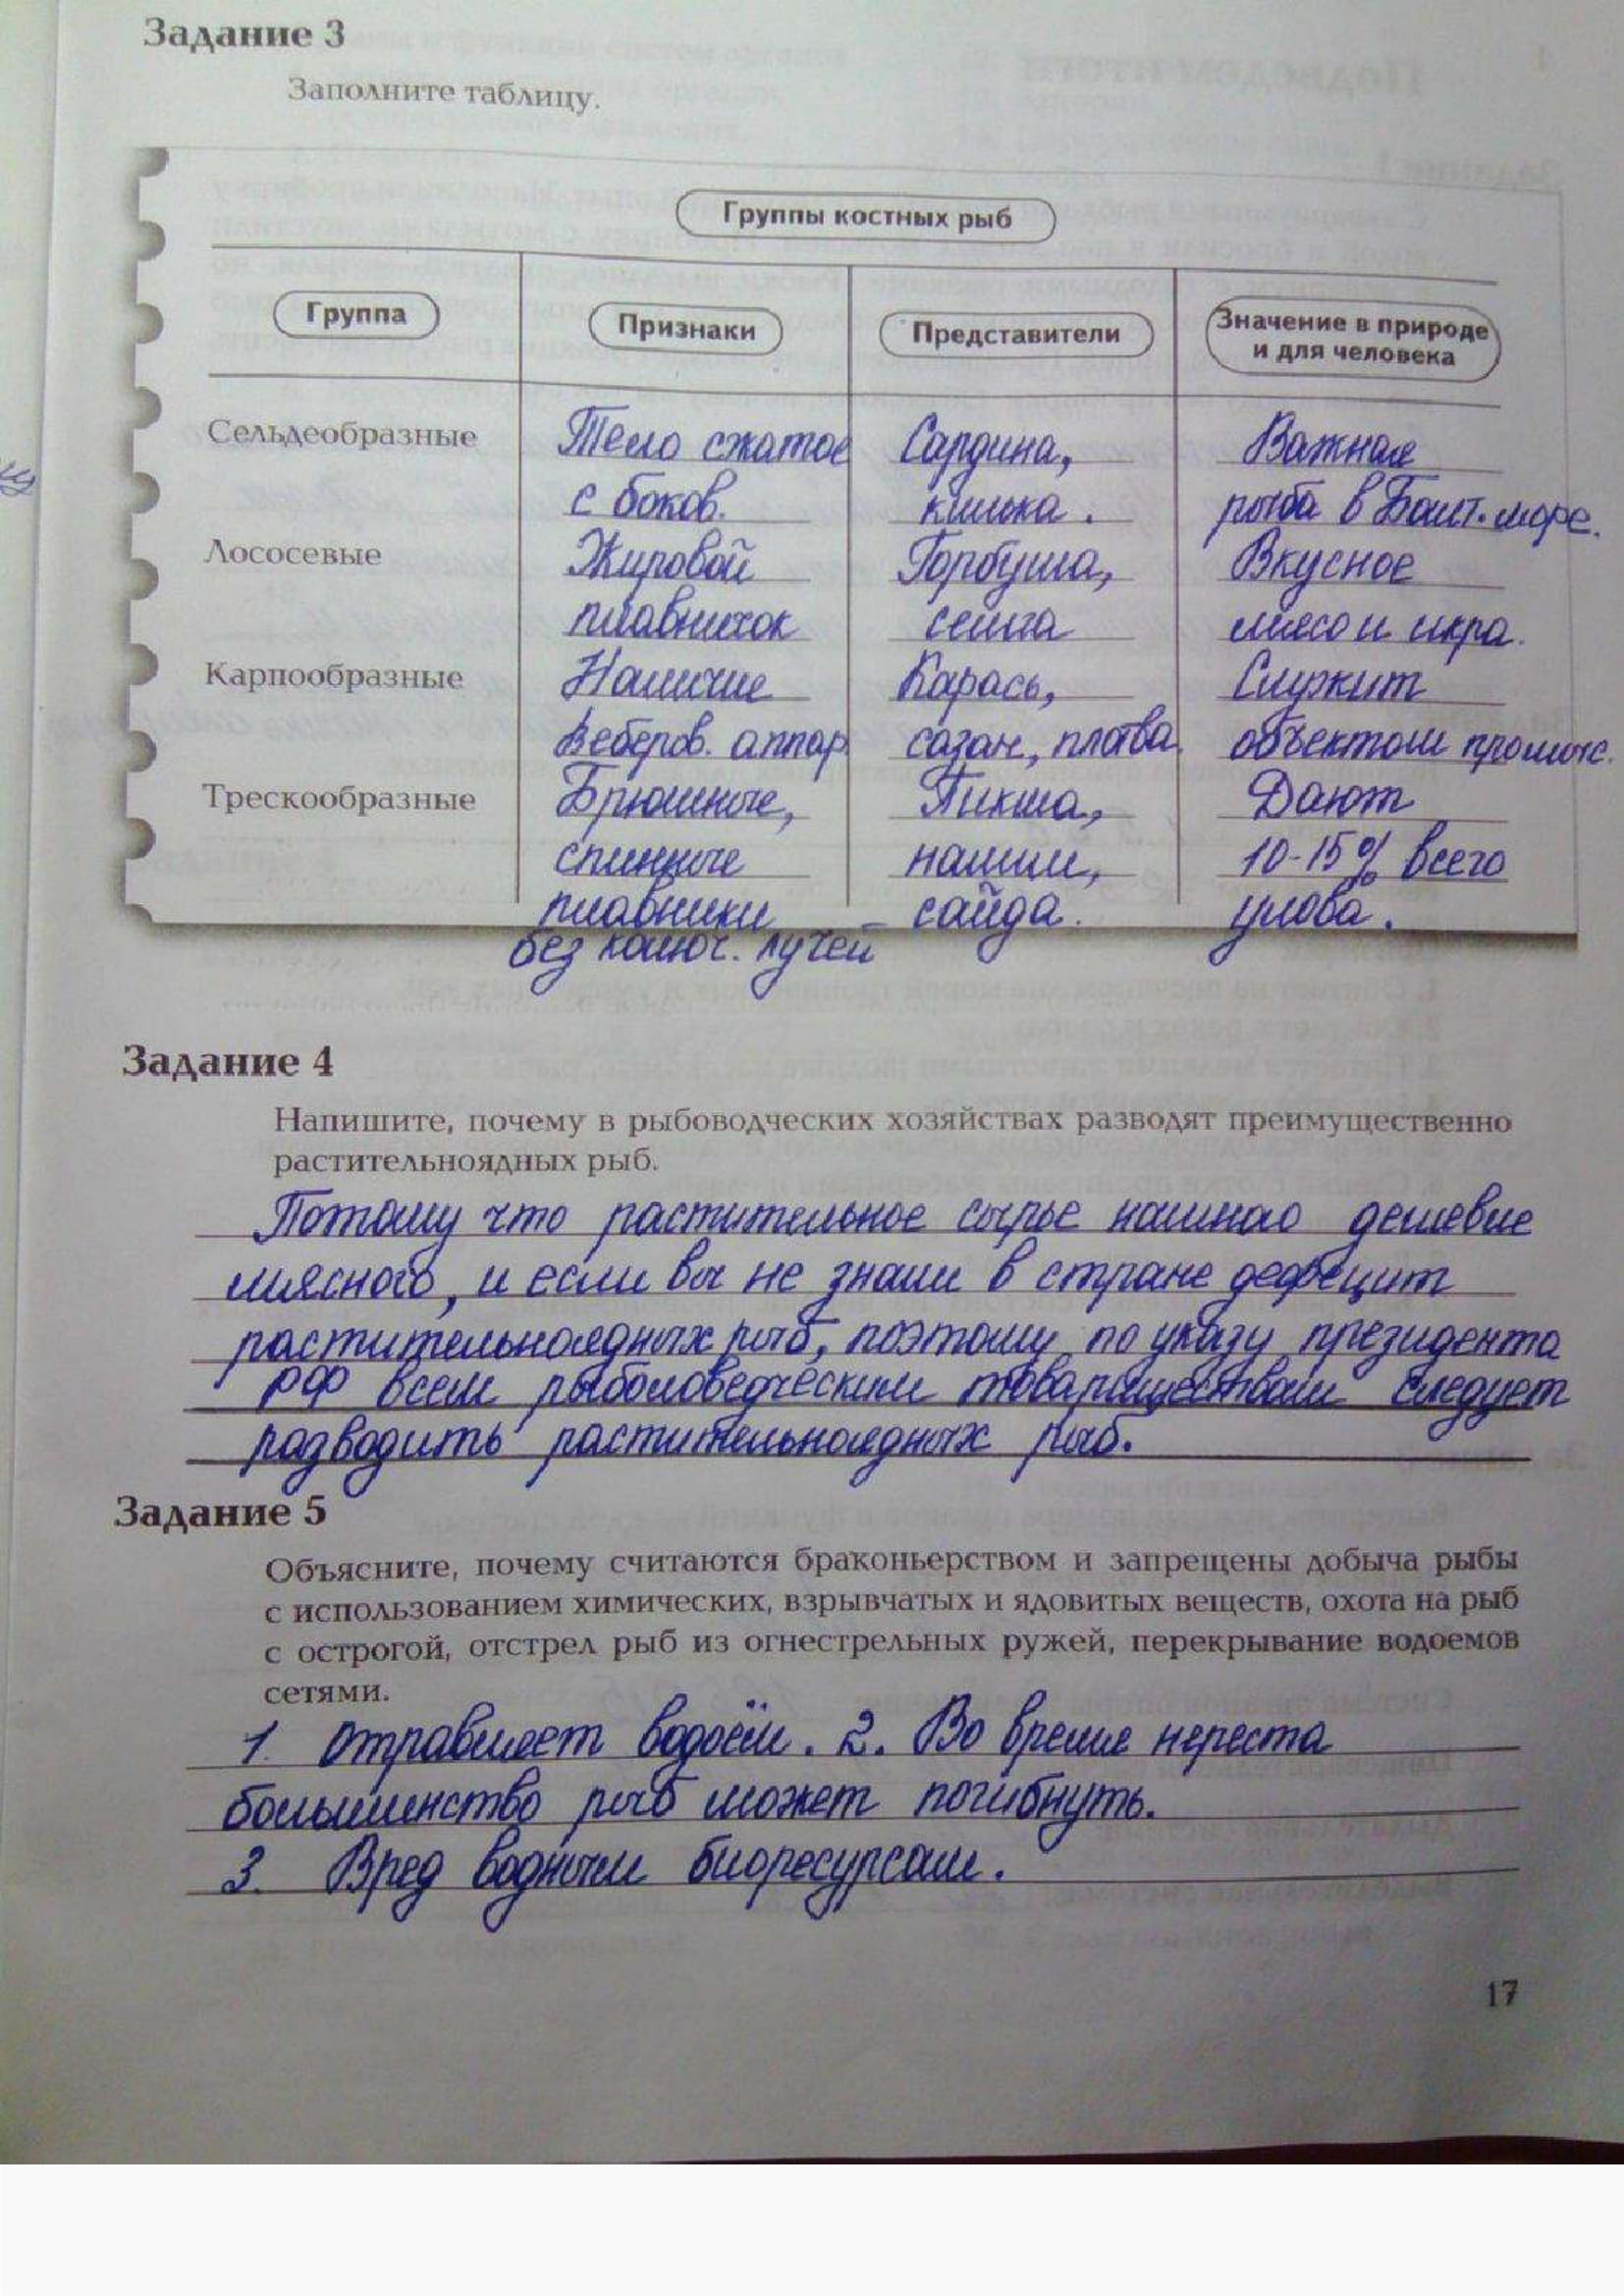 Задание 3
Заполните таблицу.
Группы костных рыб
Группа Признаки Представители Значение в природе и для человека
Сельдеобразные Тело сжатое Сардина, Важная
с боков. килька. рыба в Балт. море.
Лососевые Жировой Горбуша, Вкусное
плавничок семга мясо и икра.
Карпообразные Наличие Карась, Служит
Веберов. аппар. сазан, плотва. объектом промыс.
Трескообразные Брюшные, Пикша, Дают
спинные налим, 10-15% всего
плавники сайда. улова.
без колюч. лучей
Задание 4
Напишите, почему в рыбоводческих хозяйствах разводят преимущественно
растительноядных рыб.
Потому что растительное сырье намнао дешевле
мясного, и если вы не знали в стране дефецит
растительноядных рыб, поэтому по указу президента
РФ всем рыболоведческим товариществам следует
разводить растительноядных рыб.
Задание 5
Объясните, почему считаются браконьерством и запрещены добыча рыбы
с использованием химических, взрывчатых и ядовитых веществ, охота на рыб
с острогой, отстрел рыб из огнестрельных ружей, перекрывание водоемов
сетями.
1. Отравляет водоём. 2. Во время нереста
большинство рыб может погибнуть.
3. Вред водным биоресурсам.
17